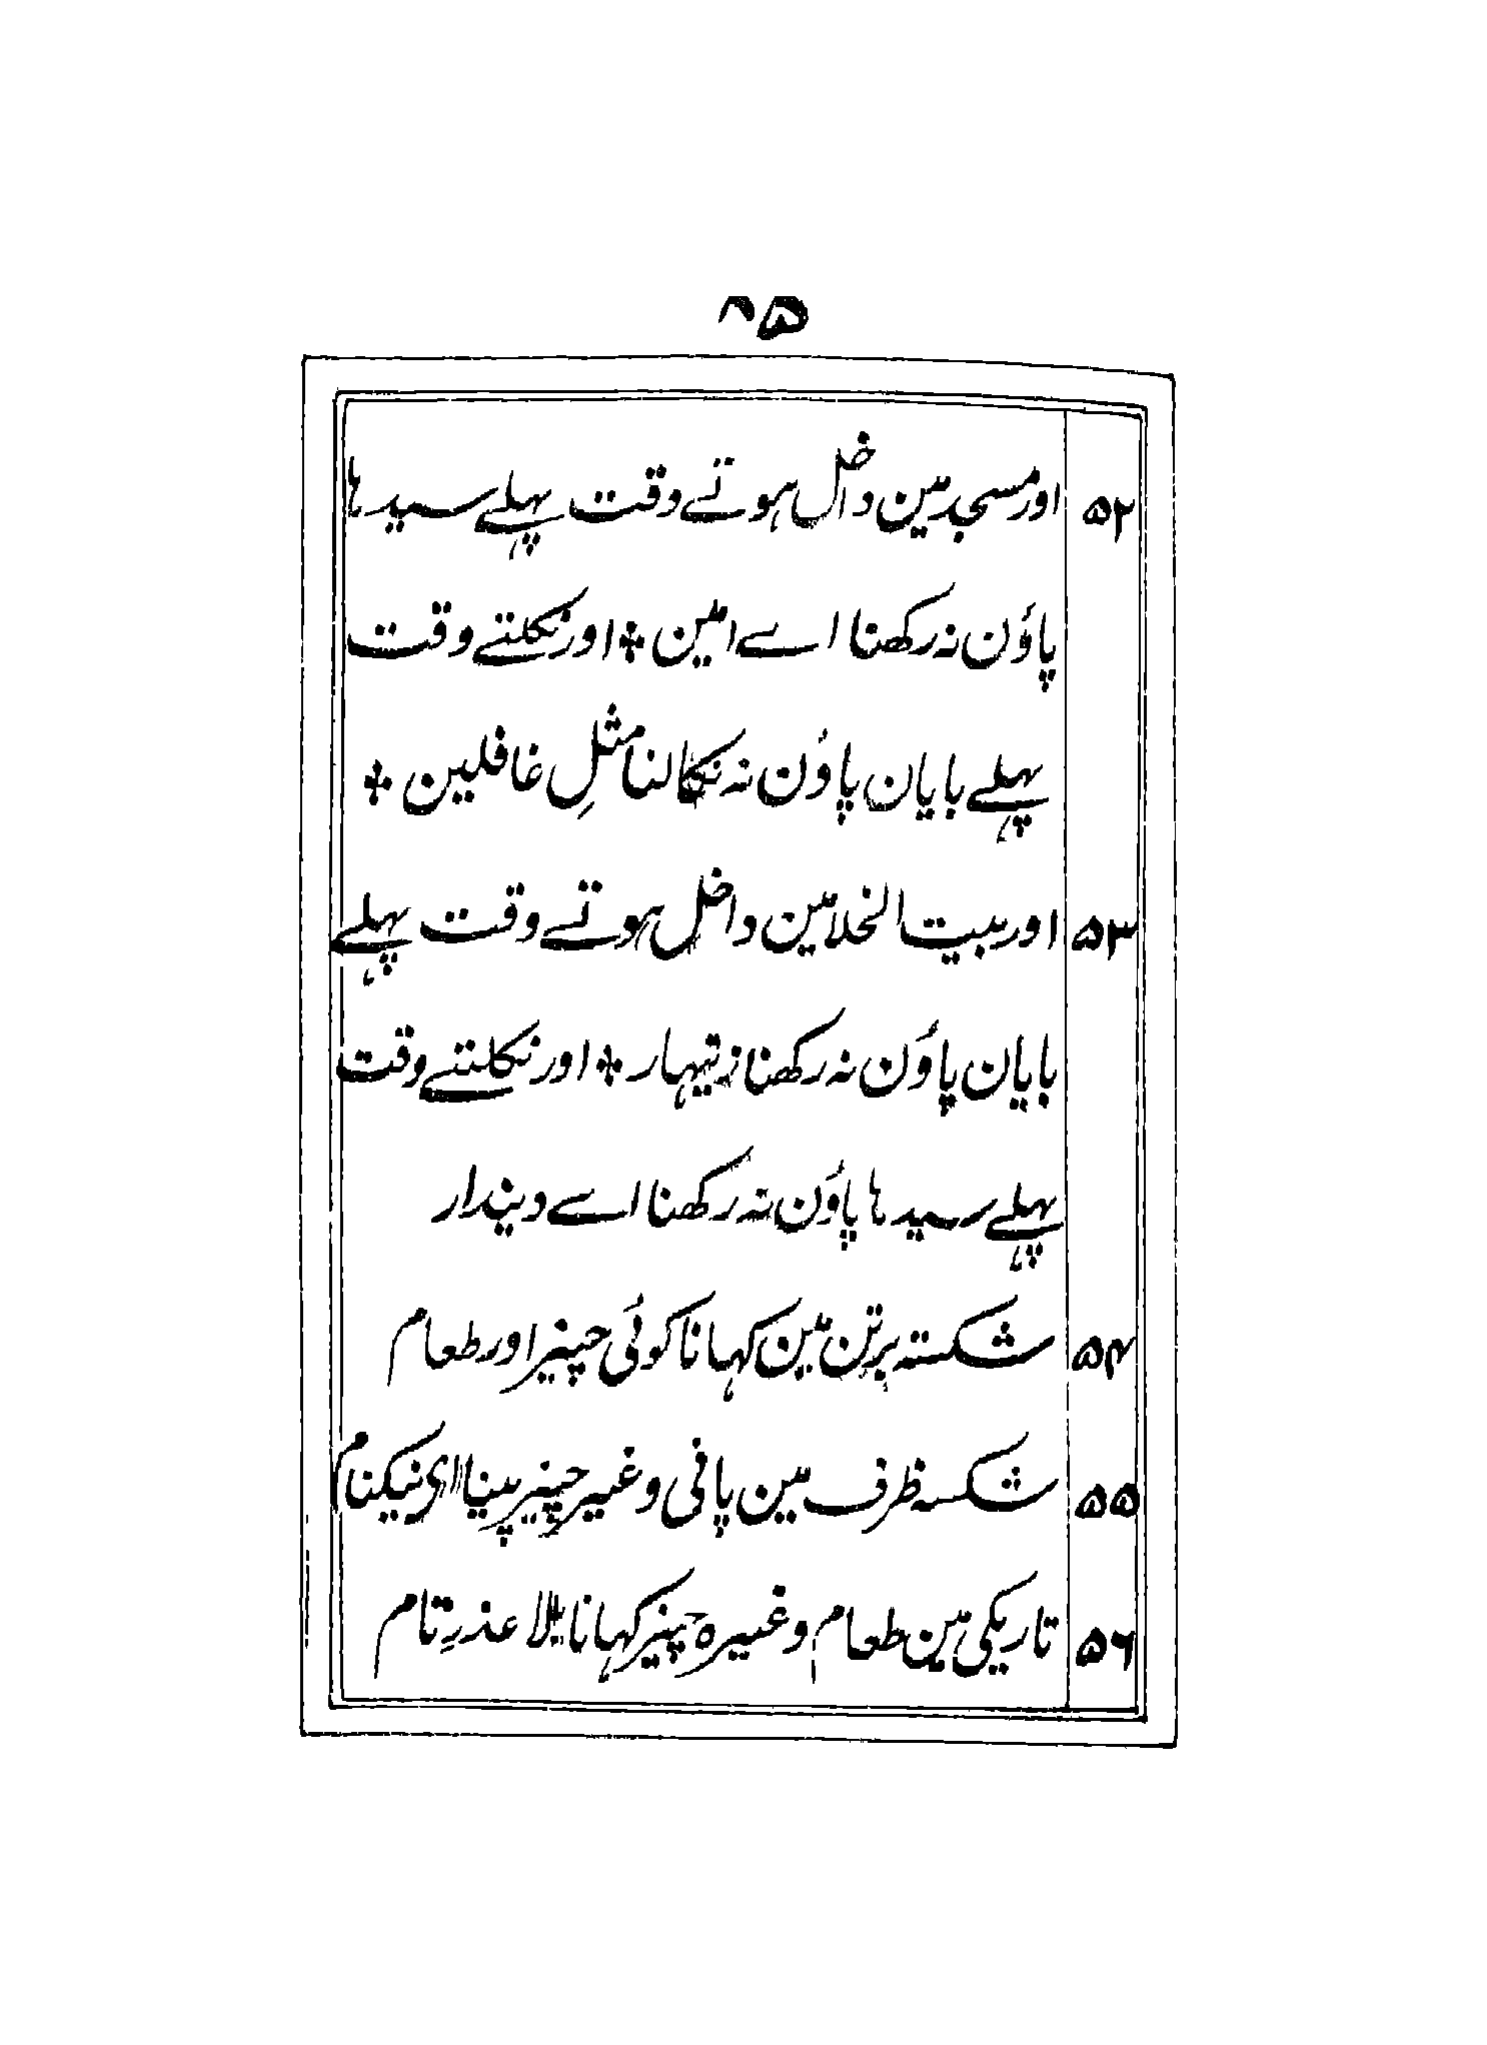 ۵۲ اور مسجد مین داخل ہوتے وقت پہلے سیدہا
پاؤن نہ رکھنا اے امین ؞ اور نکلتے وقت
پہلے بایان پاؤن نہ نکالنا مثلِ غافلین ؞
۵۳ اور بیت الخلا مین داخل ہوتے وقت پہلے
بایان پاؤن نہ رکھنا زینہار ؞ اور نکلتے وقت
پہلے سیدہا پاؤن نہ رکھنا اے دیندار
۵۴ شکستہ برتن مین کہانا کوئی چیز اور طعام
۵۵ شکستہ ظرف مین پانی وغیر چیز پینا ای نیکنام
۵۶ تاریکی مین طعام وغیرہ چیز کہانا بلا عذرِ تام